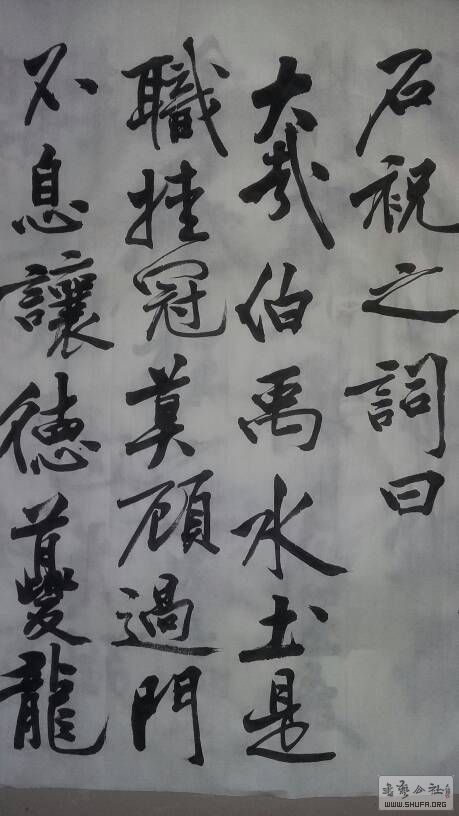 石祝之詞曰
大哉伯禹水土是
職挂冠莫顧過門
不息讓德夔龍
書藝公社
WWW.SHUFA.ORG